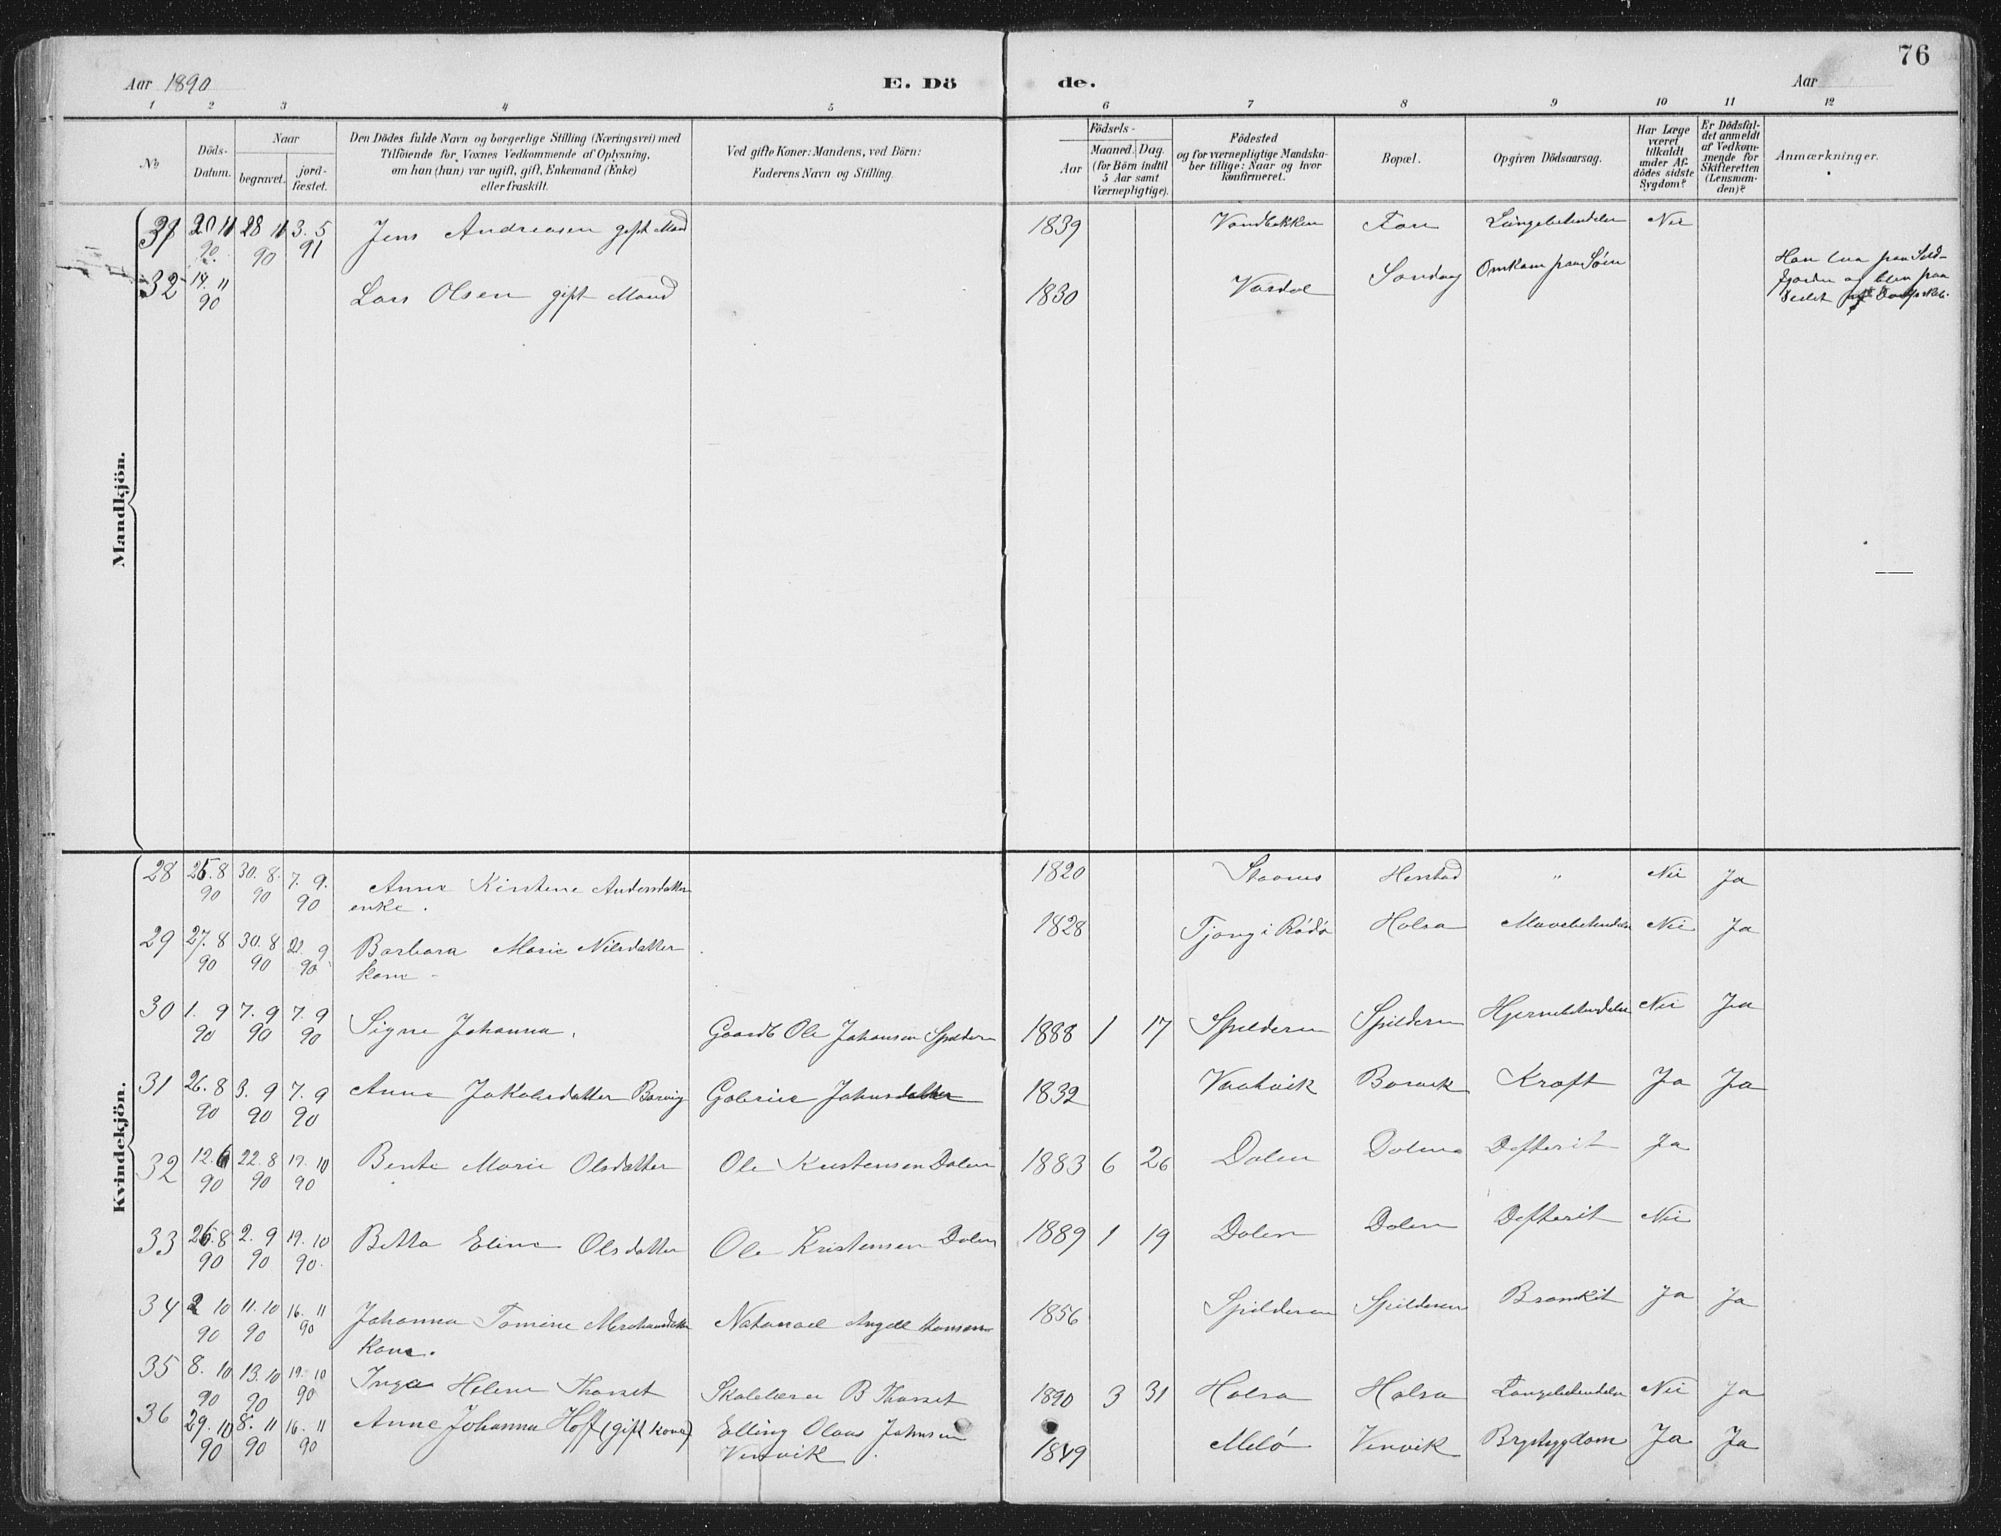 76
Aar 1890 E. Dö de. Aar
1 2 3 4 5 6 7 8 9 10 11 12
No
Döds-Datum.
Naar
begravet.
jord-fæstet.
Den Dödes fulde Navn og borgerlige Stilling (Næringsvei) med
Tilföiende for Voxnes Vedkommende af Oplysning,
om han (hun) var ugift, gift, Enkemand (Enke)
eller fraskilt.
Ved gifte Koner: Mandens, ved Börn:
Faderens Navn og Stilling.
Födsels-
Aar
Maaned. Dag.
(for Börn indtil
5 Aar samt
Værnepligtige).
Födested
og for værnepligtige Mandska-
ber tillige: Naar og hvor
konfirmeret.
Bopæl.
Opgiven Dödsaarsag.
Har Læge
været
tilkaldt
under Af-
dödes sidste
Sygdom?
Er Dödsfal-
det anmeldt
af Vedkom-
mende for
Skifteretten
(Lensman-
den)?
Anmærkninger.
Mandkjön.
31 20 11 90 28 11 90 3. 5 91 Jens Andreasen gift Mand 1839 Vandbakken Fore Lungebetendelse Nei
32 14. 11 90 Lars Olsen gift Mand 1830 Vardal Sandvag Omkom paa Söen
Kvindekjön.
28 25. 8 90 30. 8. 90 7. 9. 90 Anne Kirstene Andersdatter 1820 Staanes Henstad " Nei Ja
enke.
29 27. 8 90 30. 8 90 21. 9 90 Barbara Marie Nilsdatter 1828 Tjong i Rödö Halsa Mavebetendelse Nei Ja
kone
30 1. 9 90 7. 9 90 7. 9 90 Signe Johanna. Gaardb Ole Johansen Spilderen 1888 1 17 Spilderen Spilderen Hjernebetendelse Nei Ja
31 26. 8 90 3. 9 90 7. 9 90 Anne Jakobsdatter Borvig 1832 Kræft Ja Ja
32 12. 6 90 22. 8 90 19. 10 90 Bente Marie Olsdatter Ole Kristensen Dalen 1883 6 26 Dalen Dalen Defterit Ja
33 26. 8 90 2. 9 90 19. 10 90 Betta Eline Olsdatter Ole Kristensen Dalen 1889 1 19 Dalen Dalen Defterit Nei
34 2 10 90 11. 10 90 16. 11 90 Johanna Tomine Natanael Angell Hansen 1856 Spilderen Spilderen Bronkit Ja Ja
kone.
35 8. 10 90 13. 10 90 19. 10 90 Inga Helene Thorset Skolelærer B Thorset 1890 3 31 Halsa Halsa Lungebetendelse Nei Ja
36 29. 10 90 8. 11 90 16. 11 90 Anne Johanna Hoff (gift kone) Elling Olaus Johnsen 1849 Melö Venvik Brystsygdom Ja Ja
Venvik.